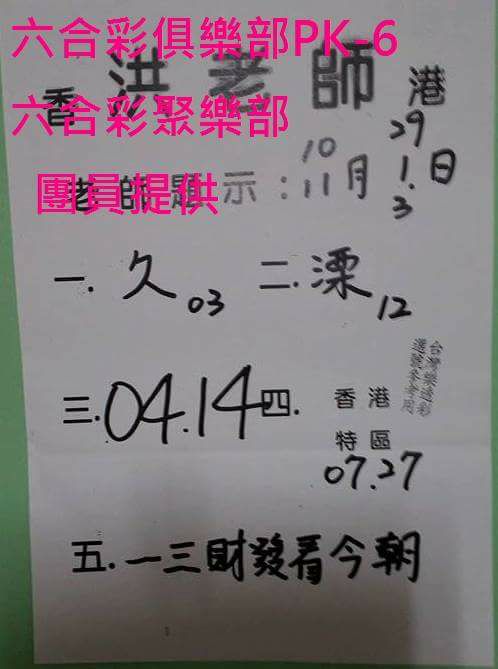 六合彩俱樂部PK-6
香 洪老師 港
六合彩聚樂部
29
老師題示:10 11月 1.3日
團員提供
一.久03 二.溧12
三.04.14 四.香港
特區
07.27
台灣樂透彩
選號參考用
五.一三財發看今朝